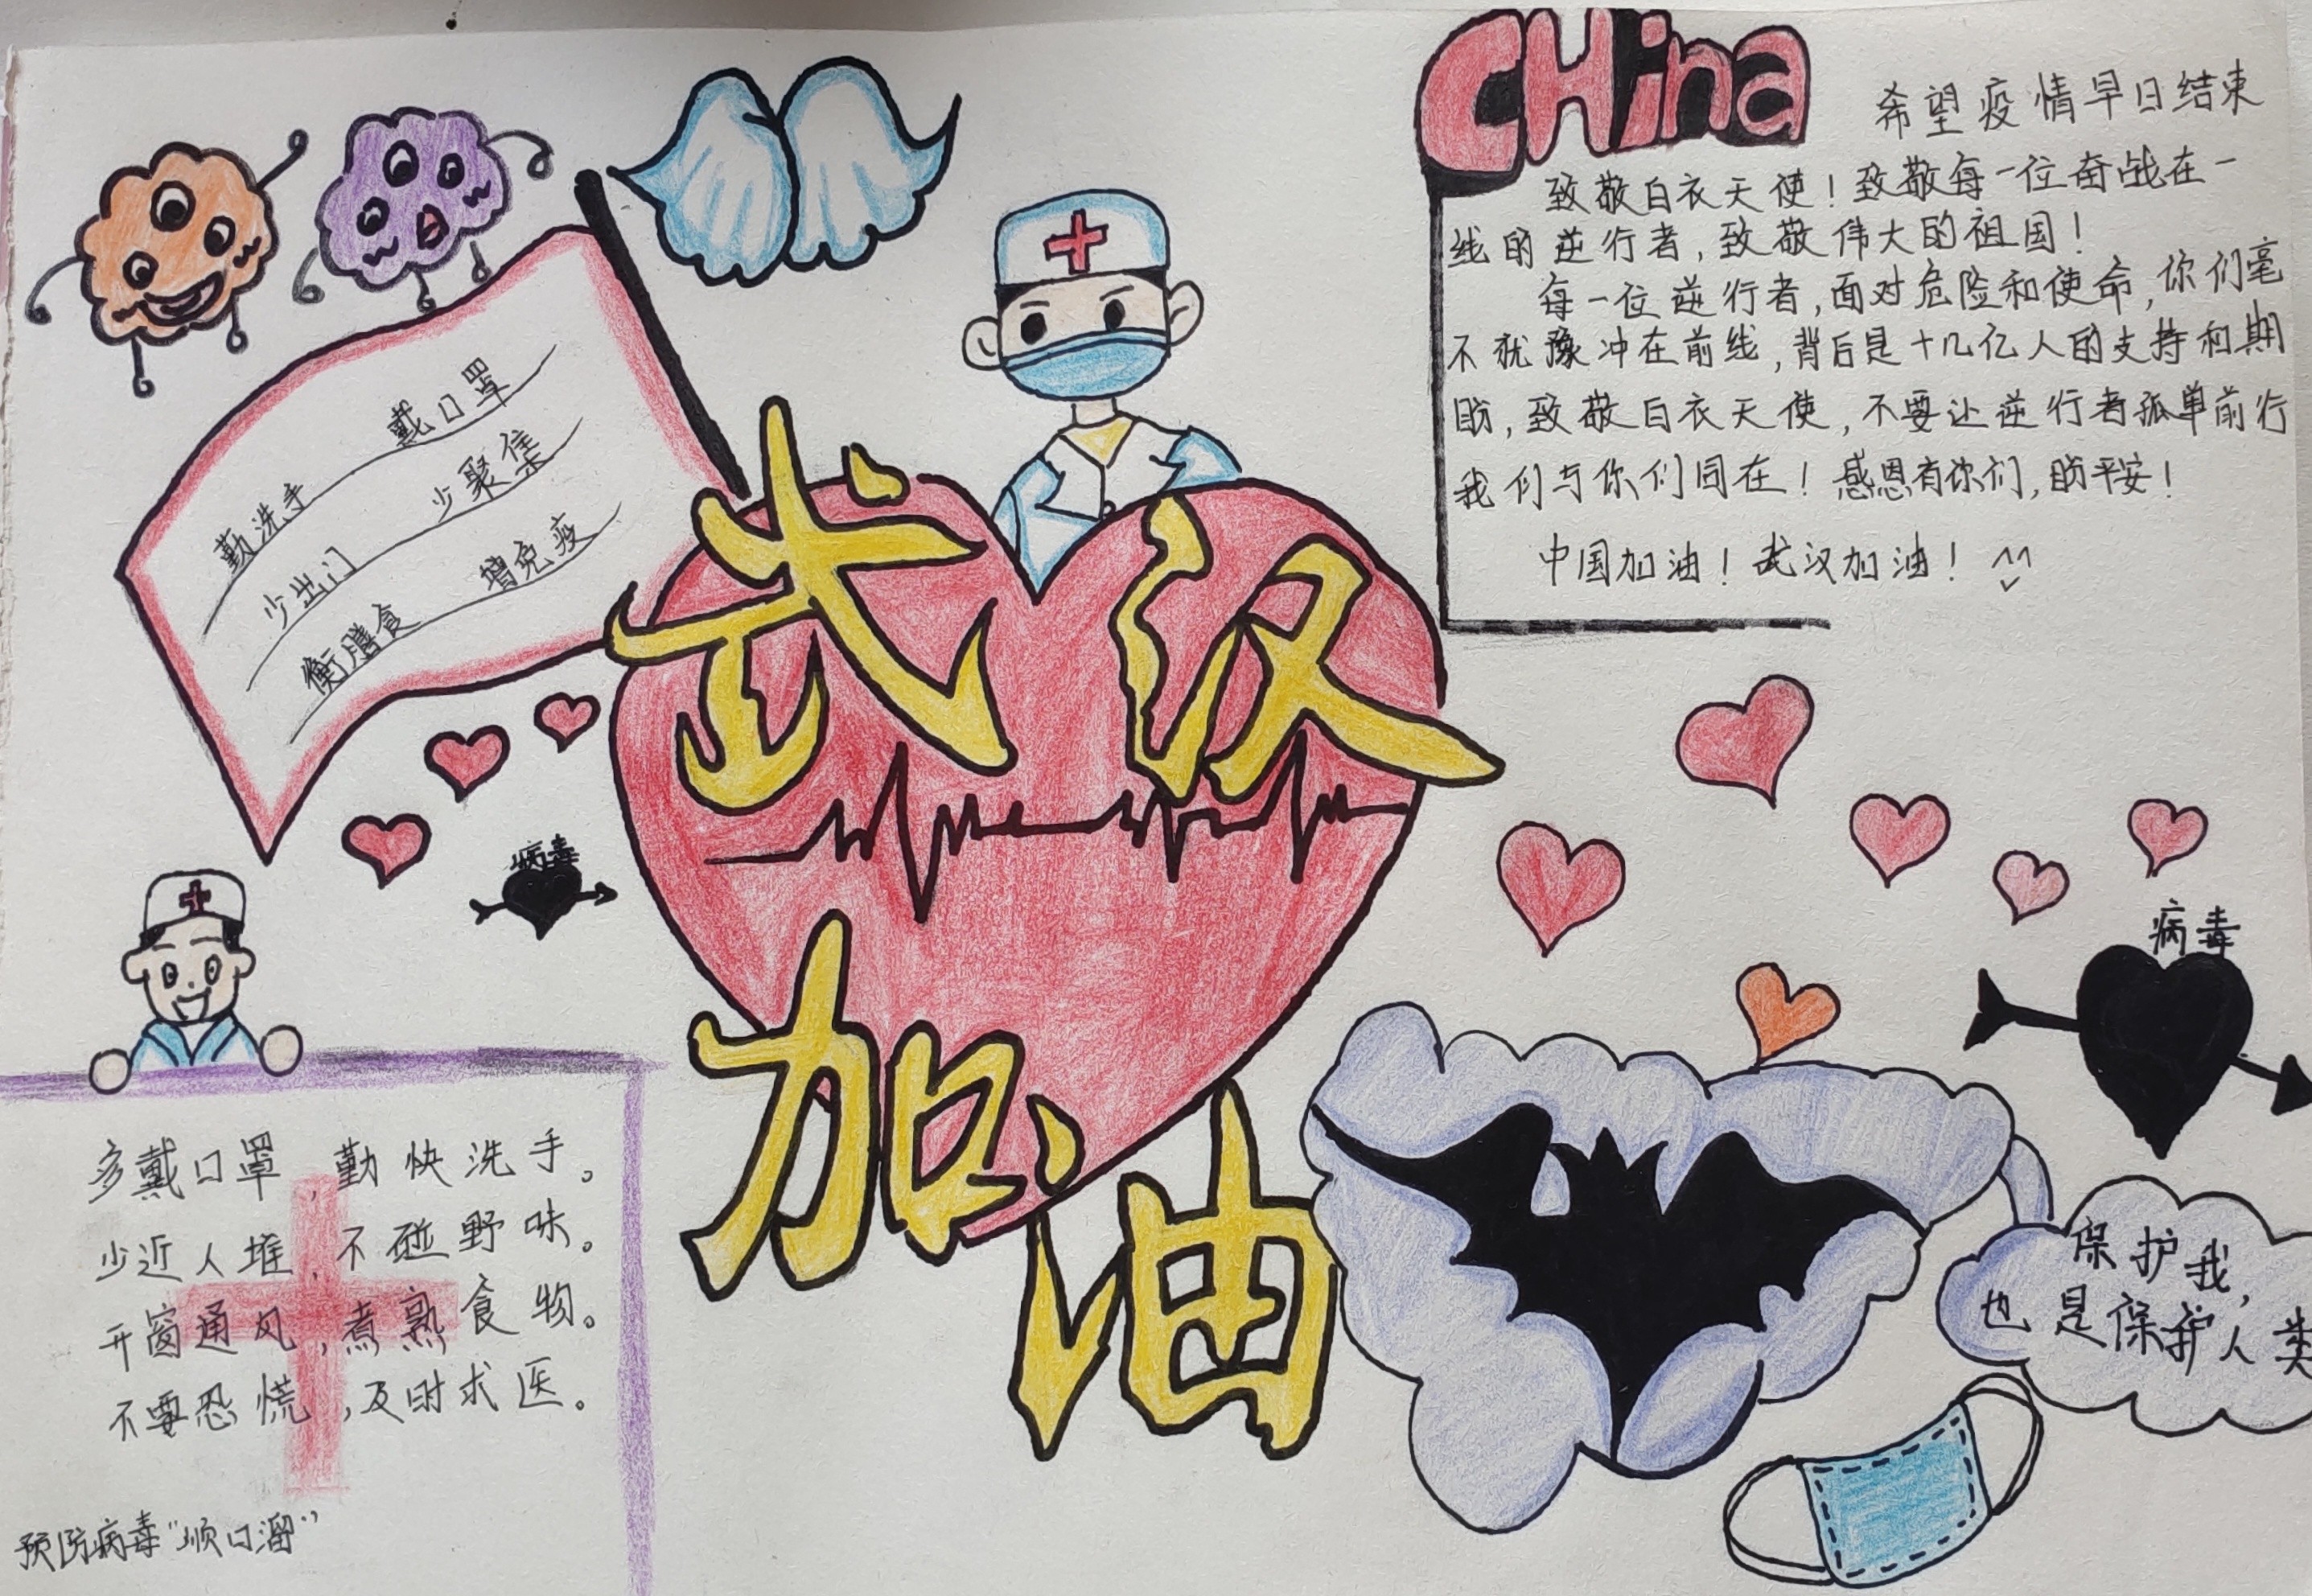 CHina
希望疫情早日结束
致敬白衣天使！致敬每一位奋战在一
线的逆行者，致敬伟大的祖国！
每一位逆行者，面对危险和使命，你们毫
不犹豫冲在前线，背后是十几亿人的支持和期
盼，致敬白衣天使，不要让逆行者孤单前行
我们与你们同在！感恩有你们，盼平安！
中国加油！武汉加油！
勤洗手 戴口罩
少出门 少聚集
衡膳食 增免疫
武汉
加油
病毒
病毒
保护我，
也是保护人类
多戴口罩，勤快洗手。
少近人堆，不碰野味。
开窗通风，煮熟食物。
不要恐慌，及时求医。
预防病毒“顺口溜”